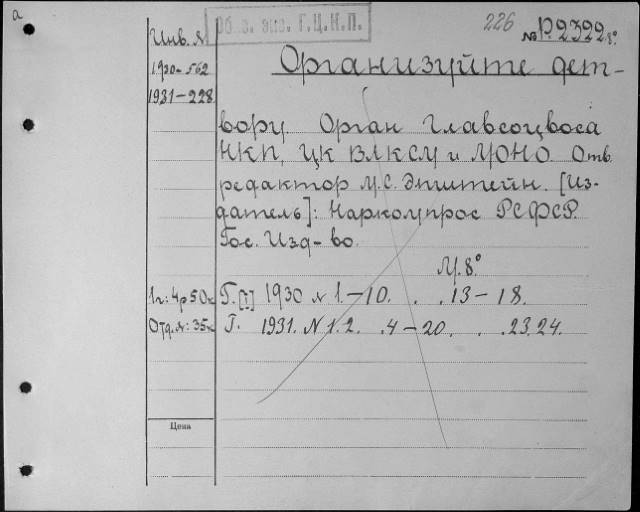 а
Обяз. экз. Г.Ц.К.П.
226 № Р.2322 8°
Инв. №
1930-562
1931-228
Организуйте дет-
вору. Орган Главсоцвоса
НКП, ЦК ВЛКСМ и МОНО. Отв.
редактор М.С. Эпштейн. [Из-
датель]: Наркомпрос РСФСР.
Гос. Изд-во.
М. 8°
1г: 4р 50к Г. [I] 1930 № 1.-10. . .13-18.
Отд. №: 35к Г. 1931. № 1.2. .4-20. . .23.24.
Цена